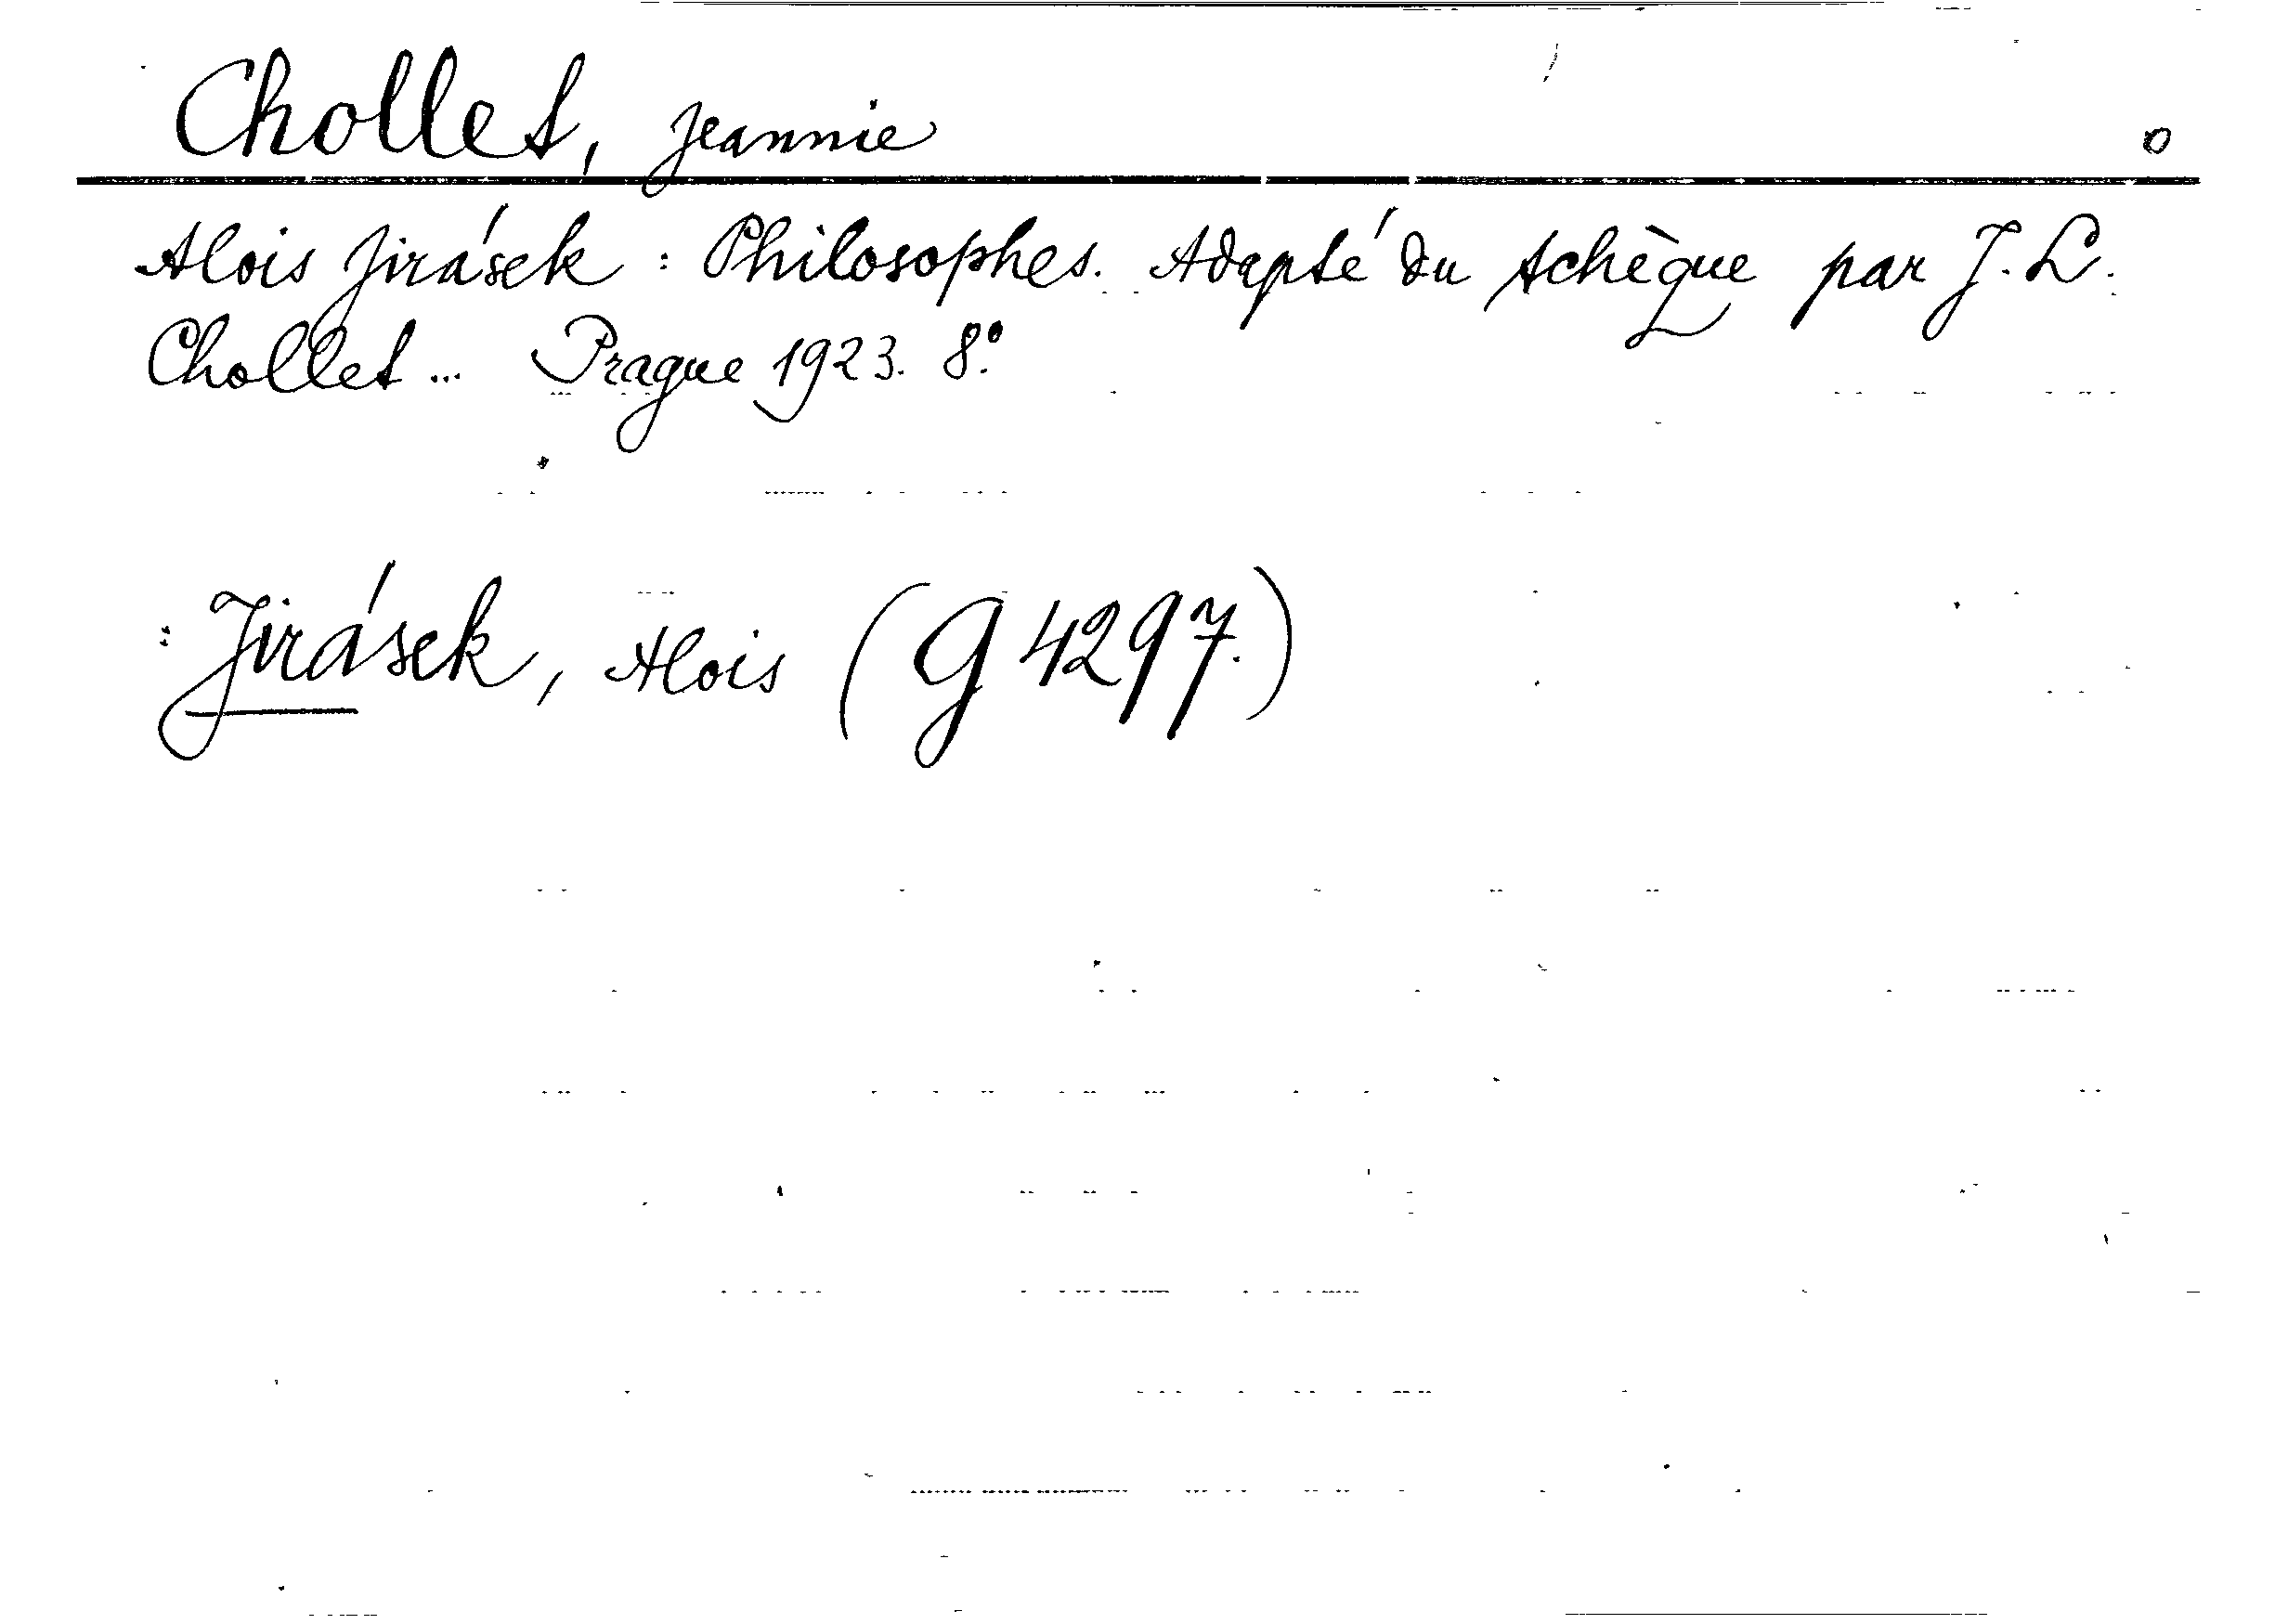 Chollet, Jeannie o
Alois Jirásek : Philosophes. Adapté du tchèque par J. L.
Chollet ... Prague 1923. 8.º
: Jirásek, Alois (G 4297.)